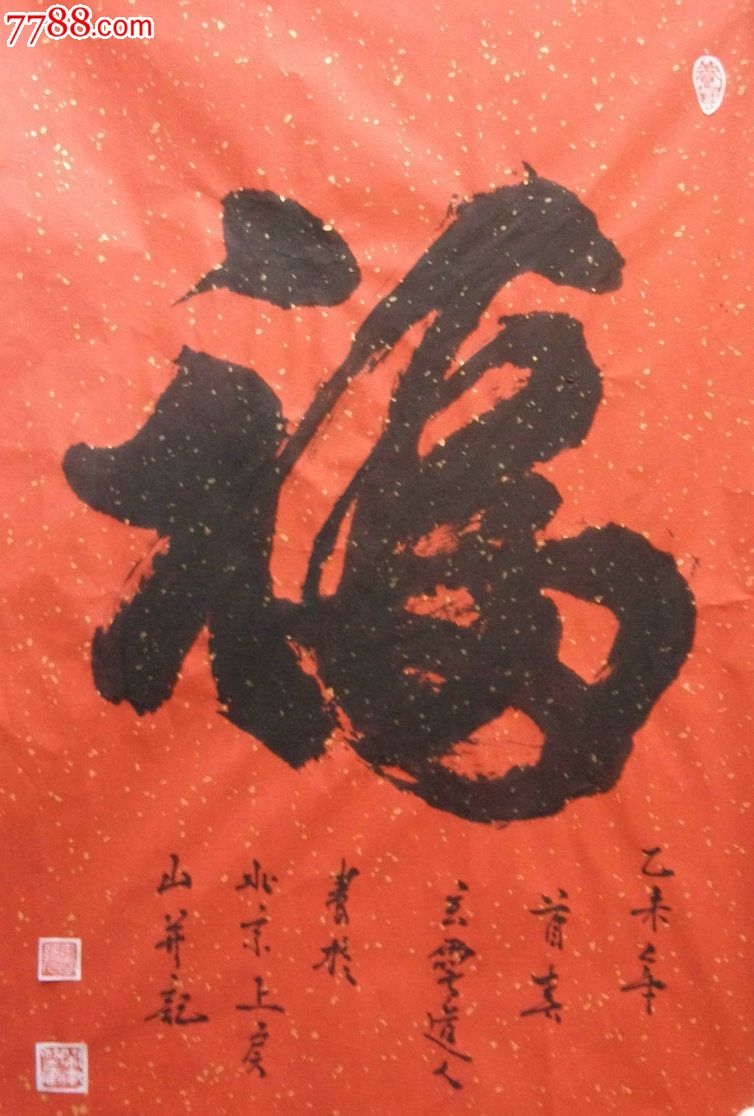 7788.com
福
乙未年
首春
玄灵道人
書於
北京上房
山并記